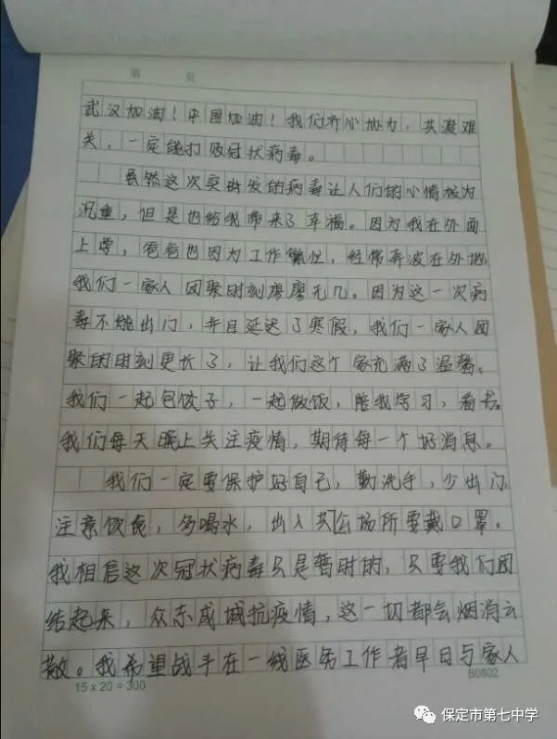 第 页
武汉加油！中国加油！我们齐心协力，共渡难
关，一定能打败冠状病毒。
虽然这次突出发的病毒让人们的心情极为
沉重，但是也给我带来了幸福。因为我在外面
上学，爸爸也因为工作繁忙，经常奔波在外地
我们一家人团聚时刻寥寥无几。因为这一次病
毒不能出门，并且延迟了寒假，我们一家人团
聚的时刻更长了，让我们这个家充满了温馨。
我们一起包饺子，一起做饭，陪我学习，看书。
我们每天晚上关注疫情，期待每一个好消息。
我们一定要保护好自己，勤洗手，少出门
注意饮食，多喝水，出入公场所要戴口罩。
我相信这次冠状病毒只是暂时的，只要我们团
结起来，众志成城抗疫情，这一切都会烟消云
散。我希望战斗在一线医务工作者早日与家人
15 x 20 = 300
B0502
保定市第七中学